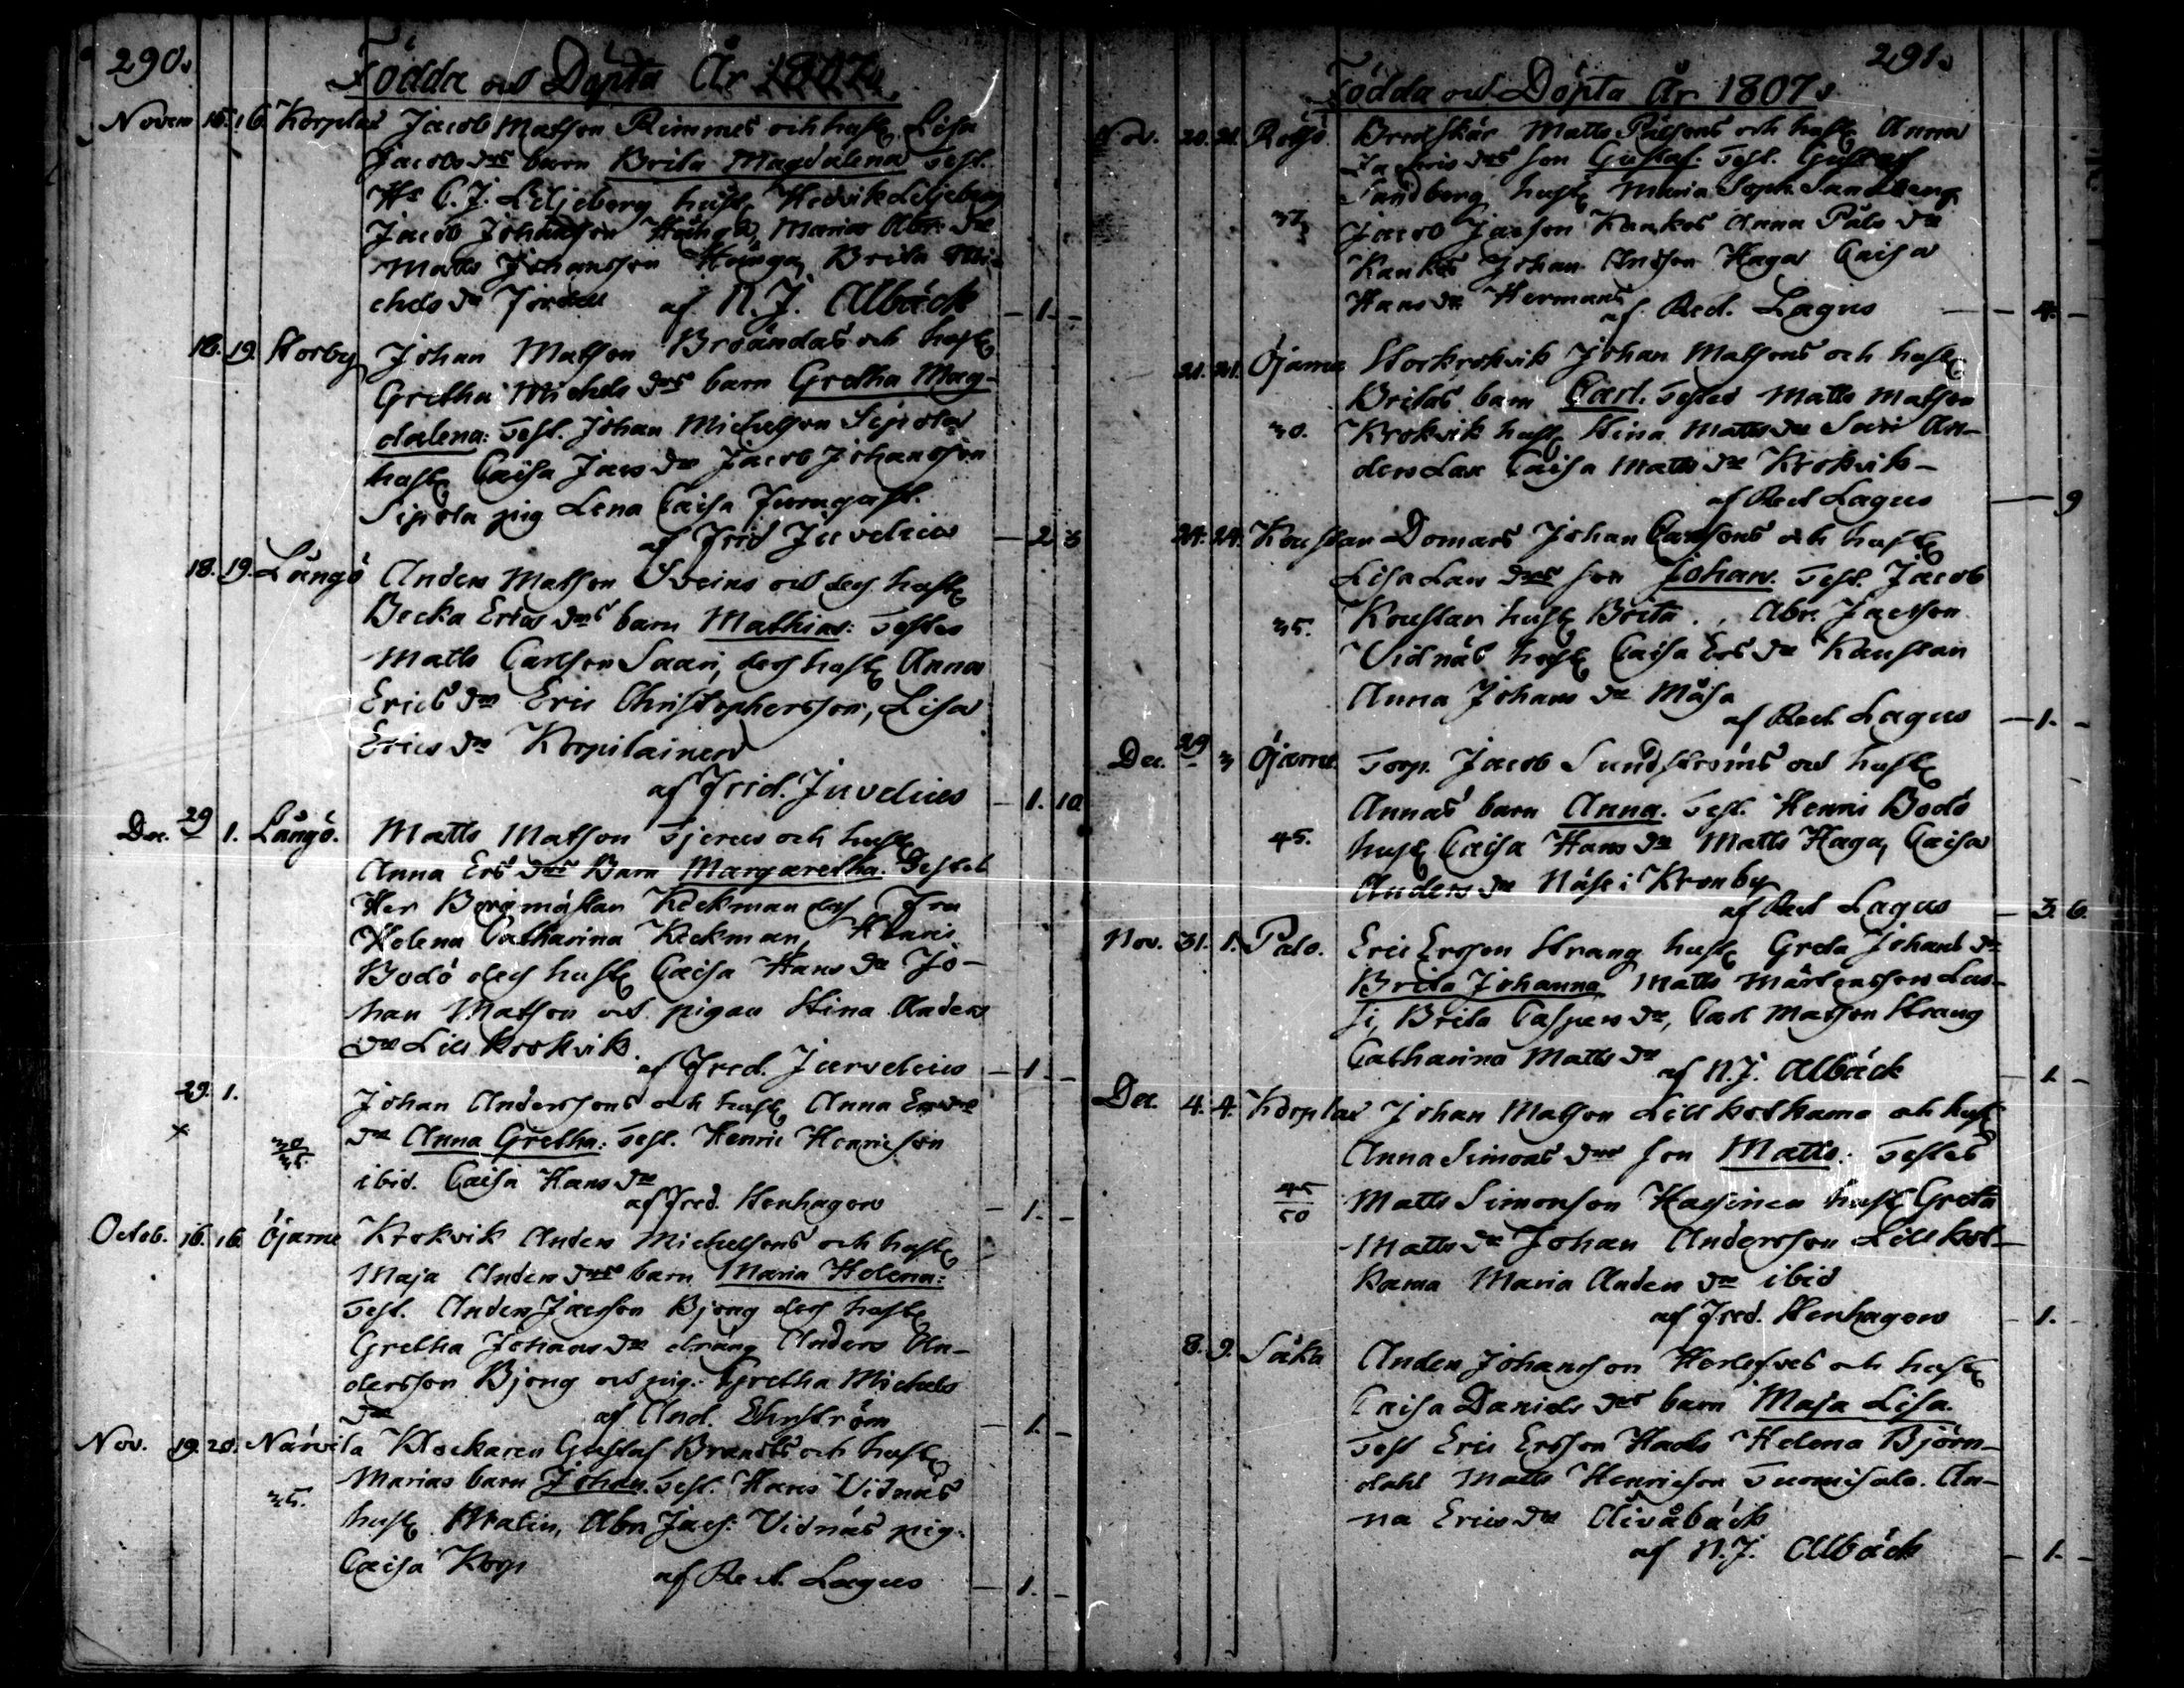 290.
Födda och Döpta År 1807.
Novem 15. 16. Korplax Jacob Matsson Rimmes och hust. Lisa
Jacobs drs barn Brita Magdalena Test.
Hr C. J. Liljeberg hust. Hedvik Liljeberg
Jacob Johansson Maria Abr. dr
Matts Johansson Brita Mi-
chels dr af N. J. Albäck – 1. –
18. 19. Storby Johan Matsson och hust.
Gretha Michels drs barn Gretha Mag-
dalena: Test. Johan Michelsson Sipola
hust. Caisa Jacs dr Jacob Johansson
Sipola pig Lena Caisa
af Frid Juvelius – 2 3
18. 19. Långö Anders Matsson Sveins och dess hust.
Becka Erics drs barn Mathias: Testes
Matts Carlsson Saari, dess hust. Anna
Erics dr Eric Christophersson, Lisa
Erics dr Korpilainen
af Frid. Juvelius – 1. 10
Dec. 29 1. Långö. Matts Matsson Tjerus och hust.
Anna Ers drs Barn Margaretha. Testes
Her Keckman dess Fru
Helena Catharina Keckman,
Bodö dess hust. Caisa Hans dr Jo-
han Matsson och pigan Stina Anders
dr Lill Krokvik.
af Fred. Juvelius – 1 –
29. 1. Johan Anderssons och hust. Anna
x dr Anna Gretha: Test. Henric Henricsson
30/35. ibid. Caisa Hans dr
af Fred. Stenhagen – 1. –
Octob. 16. 16. Öjarne Krokvik Anders Michelsons och hust.
Maja Anders drs barn Maria Helena:
Test. Anders Jacsson Bjong dess hust.
Gretha Johans dr dräng Anders An-
dersson Bjong och pig. Gretha Michels
dr af And. Ehrström – 1. –
Nov. 19. 20. Närvila Klockaren Gustaf Brandts och hust.
Marias barn Johan. Test. Hans Vidnäs
35. hust. Malin, Abr. Jacs: Vidnäs pig.
Caisa Korp af Red. Lagus – 1. –
291.
Födda och Döpta År 1807.
Nov. 20. 21. Rögö Bredskär Matts Pålsons och hust. Anna
drs son Gustaf. Test. Gustaf
Sandberg hust. Maria Soph. Sandberg
37. Jacob Jacsson Kankos Anna Påls dr
Kankos Johan Andsson Haga Caisa
Hans dr Hermans
af Red. Lagus – 4. –
21. 21. Öjarne Storkrokvik Johan Matsons och hust.
Britas barn Carl. Testes Matts Matsson
30. Krokvik hust. Stina Matts dr An-
ders Caisa Matts dr Krokvik –
af Red Lagus – 9
24. 24. Koustar Domars Johan Carlsons och hust.
Lisa drs son Johan. Test. Jacob
35. Koustar hust. Brita., Abr. Jacsson
Vidnäs hust. Caisa Ers dr Kaustar
Anna Johans dr Måsa
af Red Lagus – 1. –
Dec. 29 3 Öjarne Torp. Jacob Sundströms och hust.
Annas barn Anna. Test. Henric Bodö
45. hust. Caisa Hans dr Matts Haga, Caisa
Anders dr Näse i Kronby
af Red Lagus – 3. 6.
Nov. 31. 1. Palo. Eric Ersson Strang hust. Greta Johans dr
Brita Johanna Matts Mårtensson Las-
si, Brita Caspers dr, Carl Matsson Strang
Catharina Matts dr
af N. J. Albäck – 1 –
Dec. 4. 4. Korplax Johan Matsson Lillkotkama och hust.
Anna Simons drs son Matts: Testes
45/50 Matts Simonson Hassinen hust. Greta
Matts dr Johan Andersson Lillkot-
kama Maria Anders dr ibid
af Fred. Stenhagen – 1. –
8. 9. Såka Anders Johansson Herlefves och hust.
Caisa Daniels drs barn Maja Lisa.
Test Eric Ersson Hads Helena Björn-
dahl Matts Henricson Tuomisalo. An-
na Erics dr Åivåbäck
af N. J. Albäck – 1. –